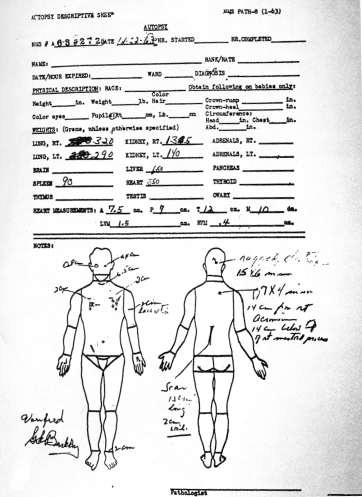 AUTOPSY DESCRIPTIVE SHEET NMS PATH-8 (1-63)
AUTOPSY
NMS # A 63 # 272 DATE 11-22-63 HR. STARTED HR. COMPLETED
NAME: RANK/RATE
DATE/HOUR EXPIRED: WARD DIAGNOSIS
PHYSICAL DESCRIPTION: RACE: Obtain following on babies only:
Color
Height in. Weight lb. Hair Crown-rump in.
Crown-heel in.
Color eyes Pupils: Rt mm, Lt. mm Circumference:
Head in. Chest in.
Abd. in.
WEIGHTS: (Grams, unless otherwise specified)
LUNG, RT. 320 KIDNEY, RT. ADRENALS, RT.
LUNG, LT. 290 KIDNEY, LT. 140 ADRENALS, LT.
BRAIN LIVER 650 PANCREAS
SPLEEN 90 HEART 350 THYROID
THYMUS TESTIS OVARY
HEART MEASUREMENTS: A 7.5 cm. P 7 cm. T 12 cm. M 10 cm.
LVM 1.5 cm. RVM .4 cm.
NOTES:
15 x 6 mm
7 X 4 mm
14 cm from rt
acromion
14 cm below
rt mastoid process
Scar
long
Verified
GG Burkley
Pathologist